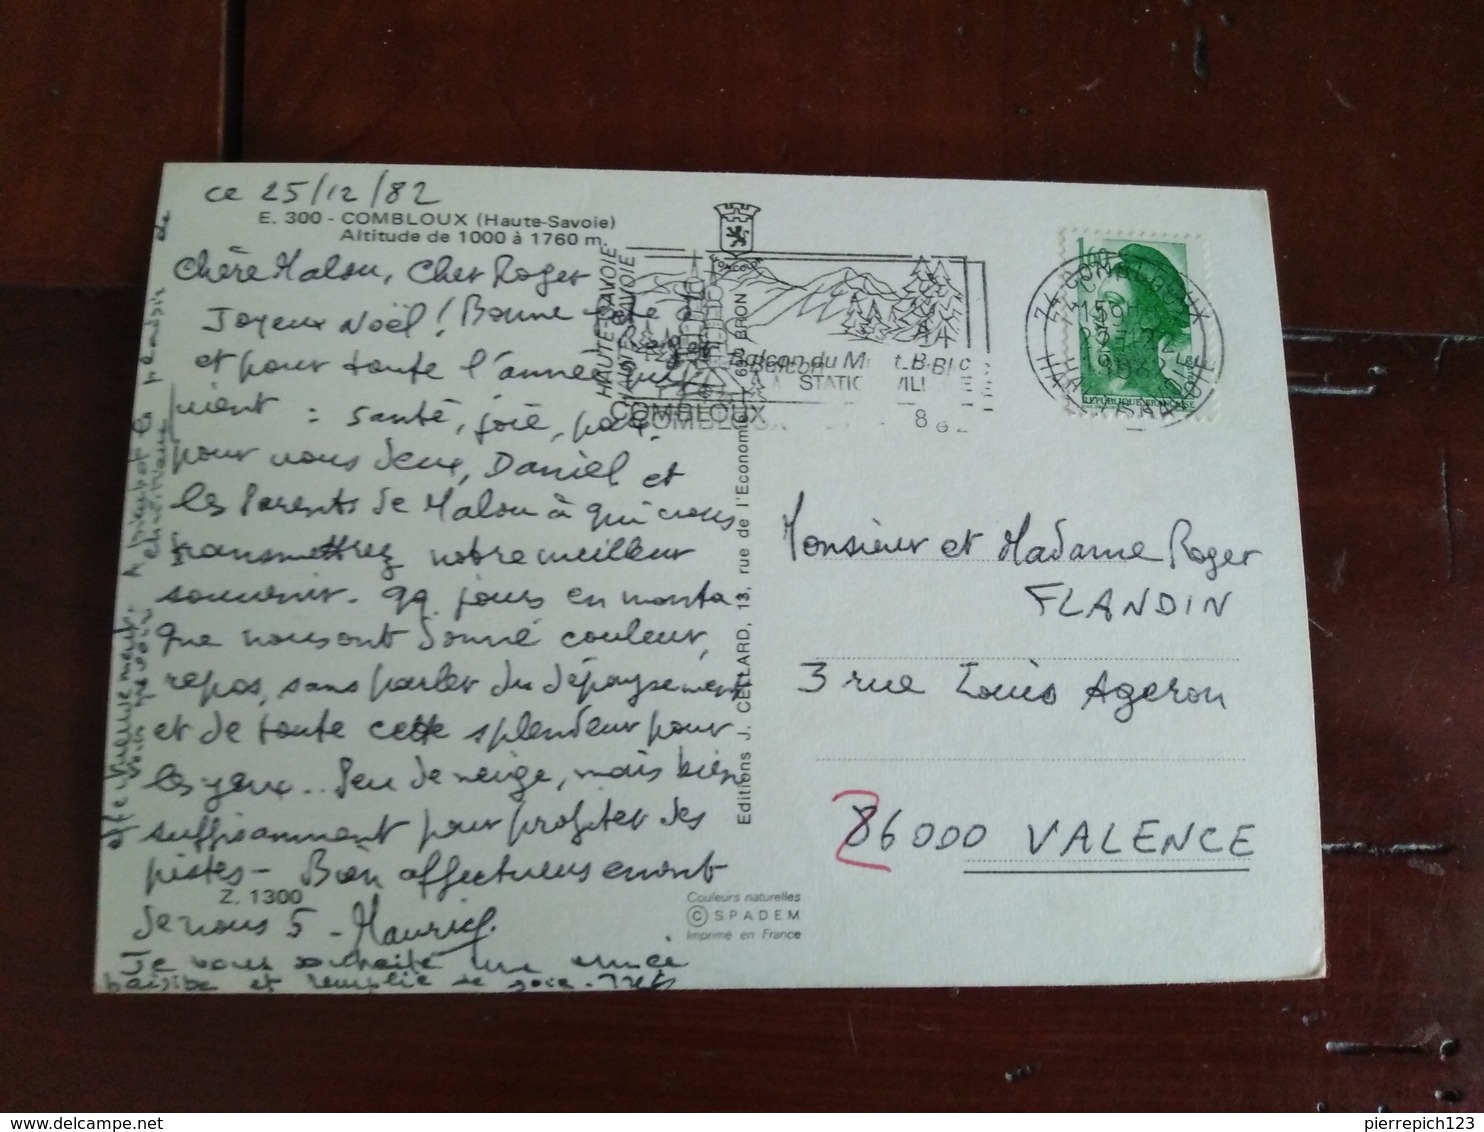 ce 25/12/82
E. 300 - COMBLOUX (Haute-Savoie)
Altitude de 1000 à 1760 m.
Chère Malou, Cher Roger
Joyeux Noël! Bonne
et pour toute l'année qui
vient : santé, joie, paix,
pour vous deux, Daniel et
les Parents de Malou à qui vous
transmettrez notre meilleur
souvenir. qq. jours en monta
gne nous ont donné couleur,
repos, sans parler du dépaysement
et de toute cette splendeur pour
les yeux... Peu de neige, mais bien
suffisamment pour profiter des
pistes - Bien affectueusement
Z. 1300
de nous 5 - Maurice.
Je vous souhaite une année
paisible et remplie de joie. Très
affectueusement. A bientôt le plaisir de
vous revoir
HAUTE-SAVOIE
Balcon du Mont-Blanc
COMBLOUX
Editions J. CELLARD, 13, rue de l'Economie, 69 BRON
Couleurs naturelles
© SPADEM
Imprimé en France
74 COMBLOUX
HAUTE SAVOIE
1,60
REPUBLIQUE FRANÇAISE
Monsieur et Madame Roger
FLANDIN
3 rue Louis Ageron
26000 VALENCE
pierrepich123